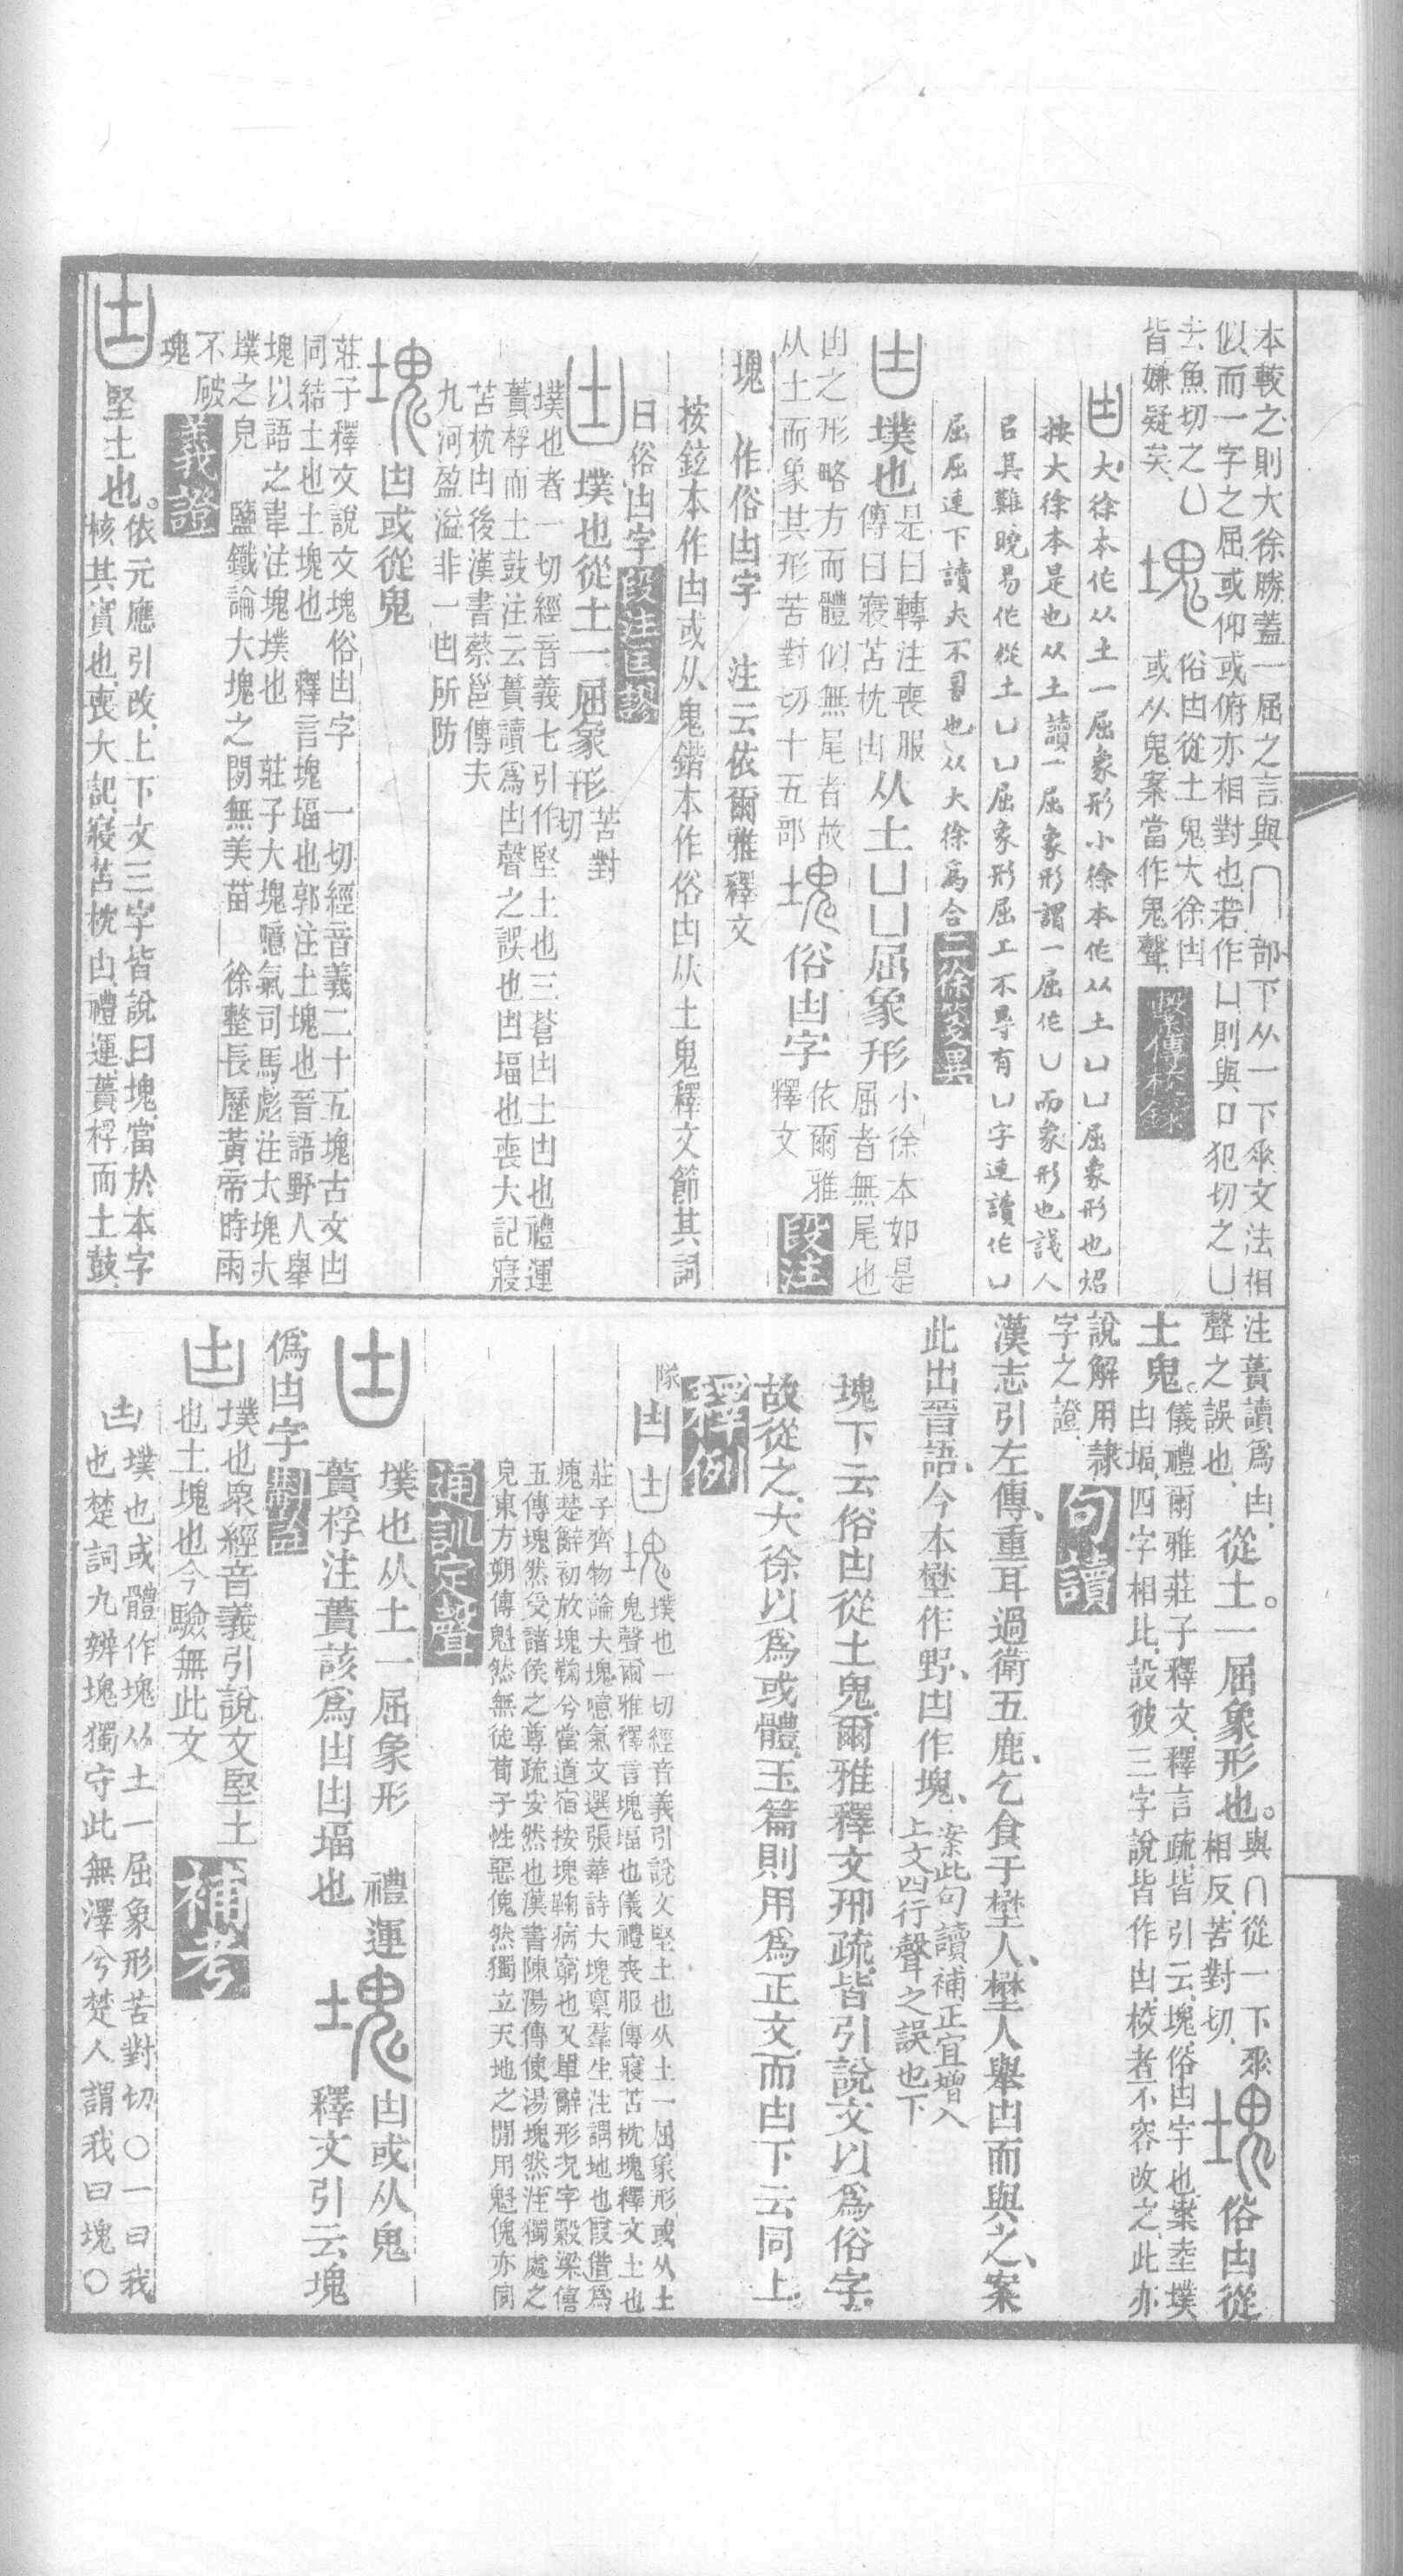 本較之則大徐勝蓋一屈之言與冂部下从一下𠂹文法相
似而一字之屈或仰或俯亦相對也若作凵則與口犯切之凵
去魚切之凵
皆嫌疑矣
塊
俗凷從土鬼大徐凷
或从鬼案當作鬼聲
繫傳校錄
凷大徐本作从土一屈象形小徐本作从土凵凵屈象形也炤
按大徐本是也从土讀一屈象形謂一屈作凵而象形也淺人
屈屈連下讀大不可也从大徐爲合
二徐箋異
凷
墣也
是曰轉注喪服
傳曰寢苫枕凷
从土凵凵屈象形
小徐本如是
屈者無尾也
凷之形略方而體似無尾者故
从土而象其形苦對切十五部
塊
俗凷字
依爾雅
釋文
段注
塊 作俗凷字 注云依爾雅釋文
按鉉本作凷或从鬼鍇本作俗凷从土鬼釋文節其詞
曰俗凷字
段注匡謬
凷
墣也從土一屈象形
苦對
切
墣也者一切經音義七引作堅土也三蒼凷土凷也禮運
蕢桴而土鼓注云蕢讀爲凷聲之誤也凷堛也喪大記寢
苫枕凷後漢書蔡邕傳夫
九河盈溢非一凷所防
塊
凷或從鬼
莊子釋文說文塊俗凷字 一切經音義二十五塊古文凷
同結土也土塊也 釋言塊堛也郭注土塊也晉語野人舉
塊以語之韋注塊墣也 莊子大塊噫氣司馬彪注大塊大
墣之皃 鹽鐵論大塊之閒無美苗 徐整長歷黃帝時雨
不破
塊
義證
凷
堅土也
依元應引改上下文三字皆說曰塊當於本字
核其實也喪大記寢苫枕凷禮運蕢桴而土鼓
注蕢讀爲凷
聲之誤也
從土一屈象形也
與冂從一下𠂹
相反苦對切
塊
俗凷從
土鬼
儀禮爾雅莊子釋文釋言疏皆引云塊俗凷字也
凷堛四字相比設彼三字說皆作凷校者不容改之此亦
說解用隸
字之證
句讀
漢志引左傳重耳過衛五鹿乞食于壄人壄人舉凷而與之案
此出晉語今本壄作野凷作塊
案此句讀補正宜增入
上文四行聲之誤也下
塊下云俗凷從土鬼爾雅釋文邢疏皆引說文以爲俗字
故從之大徐以爲或體玉篇則用爲正文而凷下云同上
釋例
隊
凷
凷
塊
墣也一切經音義引說文堅土也从土一屈象形或从土
鬼聲爾雅釋言塊堛也儀禮喪服傳寢苫枕塊釋文土也
莊子齊物論大塊噫氣文選張華詩大塊稟羣生注謂地也叚借爲
五傳塊然受諸侯之尊疏安然也漢書陳湯傳使湯塊然注獨處之
皃東方朔傳魁然無徒荀子性惡傀然獨立天地之閒用魁傀亦同
通訓定聲
凷
墣也从土一屈象形 禮運
蕢桴注蕢該爲凷凷堛也
塊
凷或从鬼
釋文引云塊
爲凷字
斠詮
凷
墣也衆經音義引說文堅土
也土塊也今驗無此文
補考
凷
墣也或體作塊从土一屈象形苦對切〇一曰我
也楚詞九辨塊獨守此無澤兮楚人謂我曰塊〇